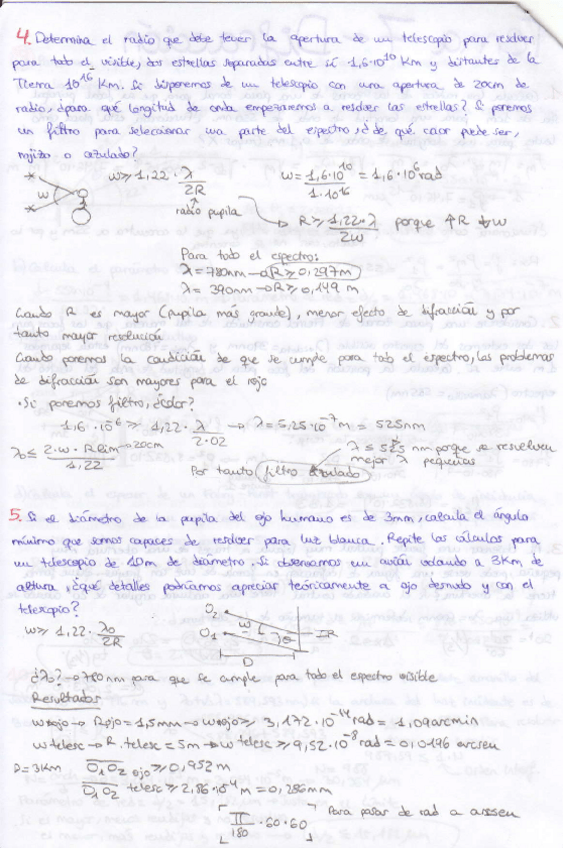 4. Determina el radio que debe tener la apertura de un telescopio para resolver
para todo el visible, dos estrellas separadas entre sí 1,6·10¹⁰ Km y distantes de la
Tierra 10¹⁶ Km. Si disponemos de un telescopio con una apertura de 20cm de
radio, ¿para qué longitud de onda empezaremos a resolver las estrellas? Si ponemos
un filtro para seleccionar una parte del espectro, ¿de qué color puede ser,
rojizo o azulado?
w w ≥ 1,22 · λ/2R w = 1,6·10¹⁰/1·10¹⁶ = 1,6·10⁶ rad
radio pupila → R ≥ 1,22·λ/2w porque ↑R ↓w
Para todo el espectro:
λ = 780nm → R ≥ 0,297m
λ = 390nm → R ≥ 0,149 m
Cuando R es mayor (pupila más grande), menor efecto de difracción y por
tanto mayor resolución
Cuando ponemos la condición de que se cumple para todo el espectro, los problemas
de difracción son mayores para el rojo
·Si ponemos filtro, ¿color?
1,6·10⁻⁶ ≥ 1,22 · λ/2·0,2 → λ = 5,25·10⁻⁷m = 525nm
λ₀ ≤ 2·w·Rlim→20cm/1,22 λ ≤ 525 nm porque se resuelven
mejor λ pequeñas
Por tanto filtro azulado
5. Si el diámetro de la pupila del ojo humano es de 3mm, calcula el ángulo
mínimo que somos capaces de resolver para luz blanca. Repite los cálculos para
un telescopio de 10m de diámetro. Si observamos un avión volando a 3Km de
altura, ¿qué detalles podríamos apreciar teóricamente a ojo desnudo y con el
telescopio?
w ≥ 1,22 · λ₀/2R O₂ O₁ w θ D
¿λ₀? → 780nm para que se cumple para todo el espectro visible
Resultados
w rojo → Rojo = 1,5mm → w rojo ≥ 3,172·10⁻⁴ rad = 1,09 arcmin
w telesc → R.telesc = 5m → w telesc ≥ 9,52·10⁻⁸ rad = 0,0196 arcsen
D = 3Km O₁O₂ ojo ≥ 0,952 m
O₁O₂ telesc ≥ 2,86·10⁻⁴ m = 0,286mm
[π/180 · 60·60] Para pasar de rad a arcsen